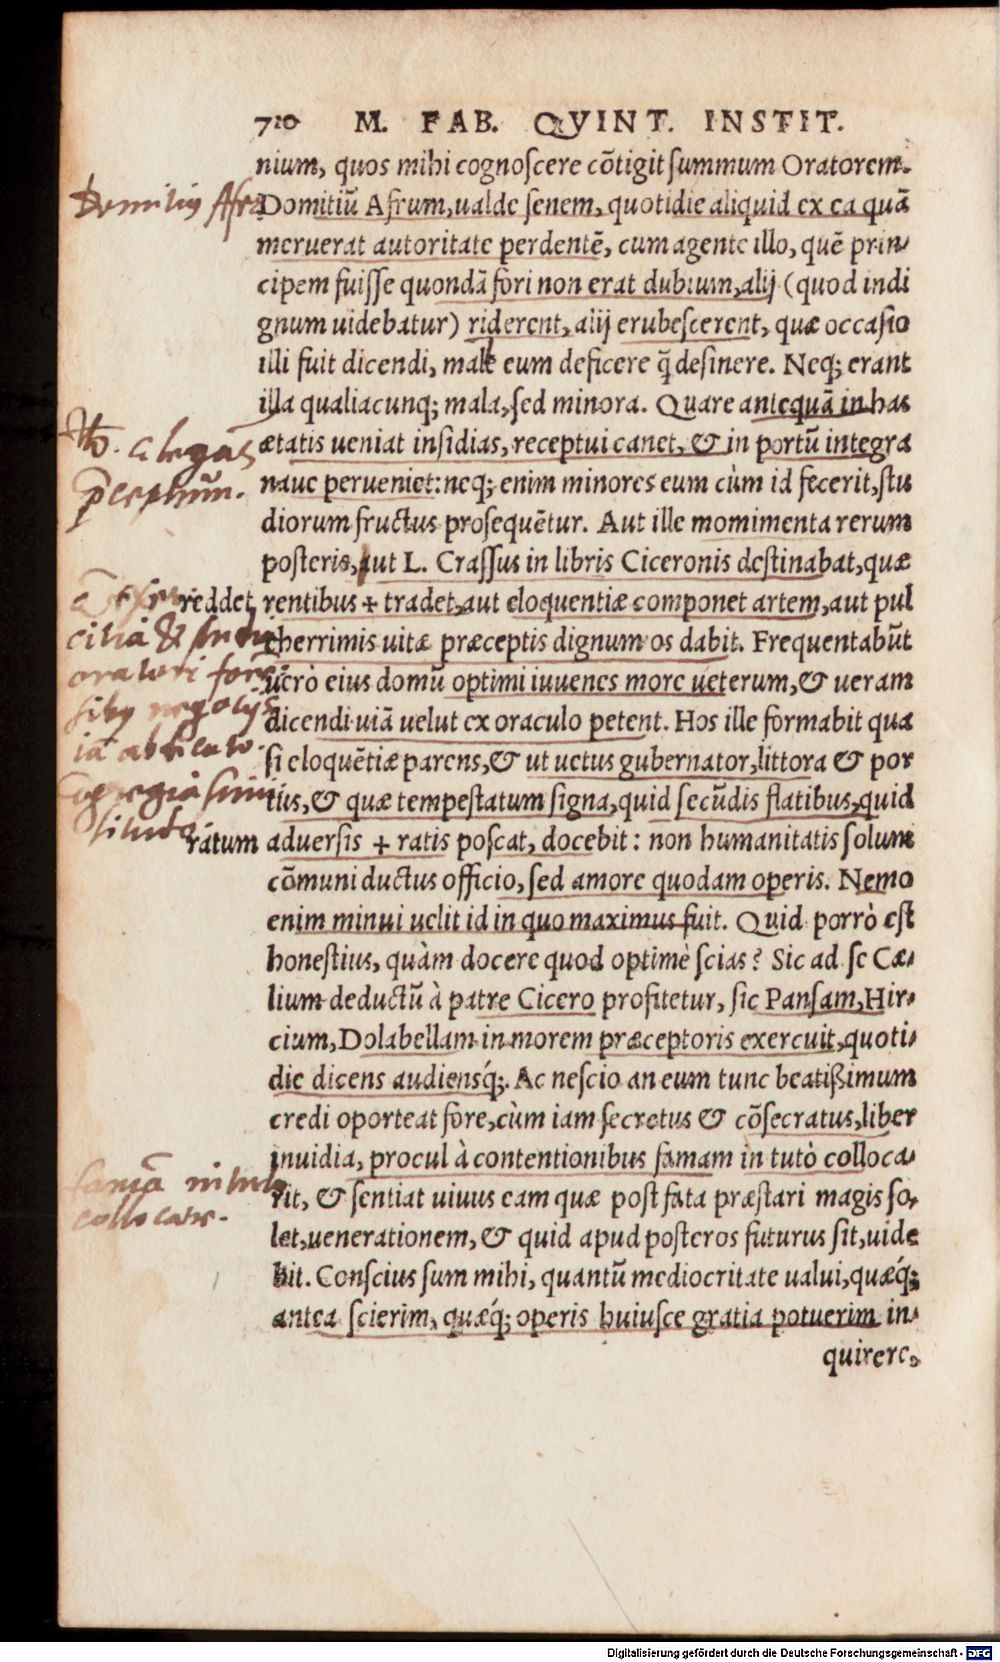 710 M. FAB. QVINT. INSTIT.
nium, quos mihi cognoſcere cõtigit ſummum Oratorem.
Domitiũ Afrum, ualde ſenem, quotidie aliquid ex ea quã
meruerat autoritate perdentẽ, cum agente illo, quẽ prin-
cipem fuiſſe quondã fori non erat dubium, alij (quod indi
gnum uidebatur) riderent, alij erubeſcerent, quæ occaſio
illi fuit dicendi, malle eum deficere q̃ deſinere. Neq; erant
illa qualiacunq; mala, ſed minora. Quare antequã in has
ætatis ueniat inſidias, receptui canet, & in portũ integra
naue perueniet: neq; enim minores eum cùm id fecerit, ſtu
diorum fructus proſequẽtur. Aut ille momimenta rerum
poſteris, aut L. Craſſus in libris Ciceronis deſtinabat, quæ
reddet rentibus + tradet, aut eloquentiæ componet artem, aut pul
cherrimis uitæ præceptis dignum os dabit. Frequentabũt
uerò eius domũ optimi iuuenes more ueterum, & ueram
dicendi uiã uelut ex oraculo petent. Hos ille formabit qua
ſi eloquẽtiæ parens, & ut uetus gubernator, littora & por
tus, & quæ tempeſtatum ſigna, quid ſecũdis flatibus, quid
ratum aduerſis + ratis poſcat, docebit: non humanitatis ſolum
cõmuni ductus officio, ſed amore quodam operis. Nemo
enim minui uelit id in quo maximus fuit. Quid porrò eſt
honeſtius, quàm docere quod optimè ſcias? Sic ad ſe Cæ-
lium deductũ à patre Cicero profitetur, ſic Panſam, Hir-
cium, Dolabellam in morem præceptoris exercuit, quoti-
die dicens audiensq́;. Ac neſcio an eum tunc beatißimum
credi oporteat fore, cùm iam ſecretus & cõſecratus, liber
inuidia, procul à contentionibus famam in tutò colloca-
rit, & ſentiat uiuus eam quæ poſt fata præſtari magis ſo-
let, uenerationem, & quid apud poſteros futurus ſit, uide
bit. Conſcius ſum mihi, quantũ mediocritate ualui, quæq́;
antea ſcierim, quæq́; operis huiuſce gratia potuerim in-
quirere,
Domitiũ Afrũ
famã
collocare.
Digitalisierung gefördert durch die Deutsche Forschungsgemeinschaft - DFG